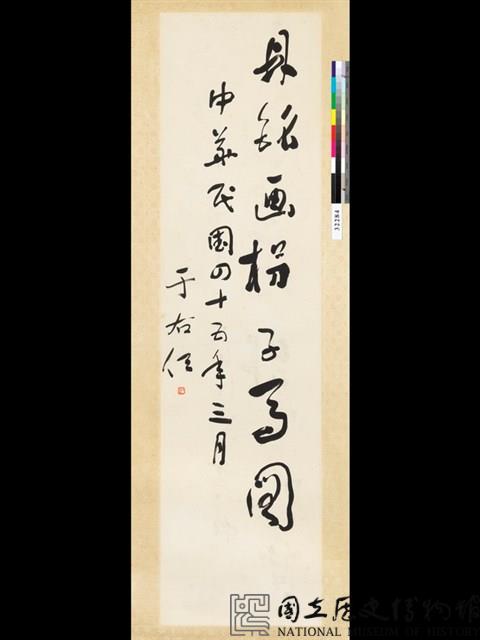 鼎銘画枴子馬圖
中華民國四十五年三月
于右任
國立歷史博物館
NATIONAL MUSEUM OF HISTORY